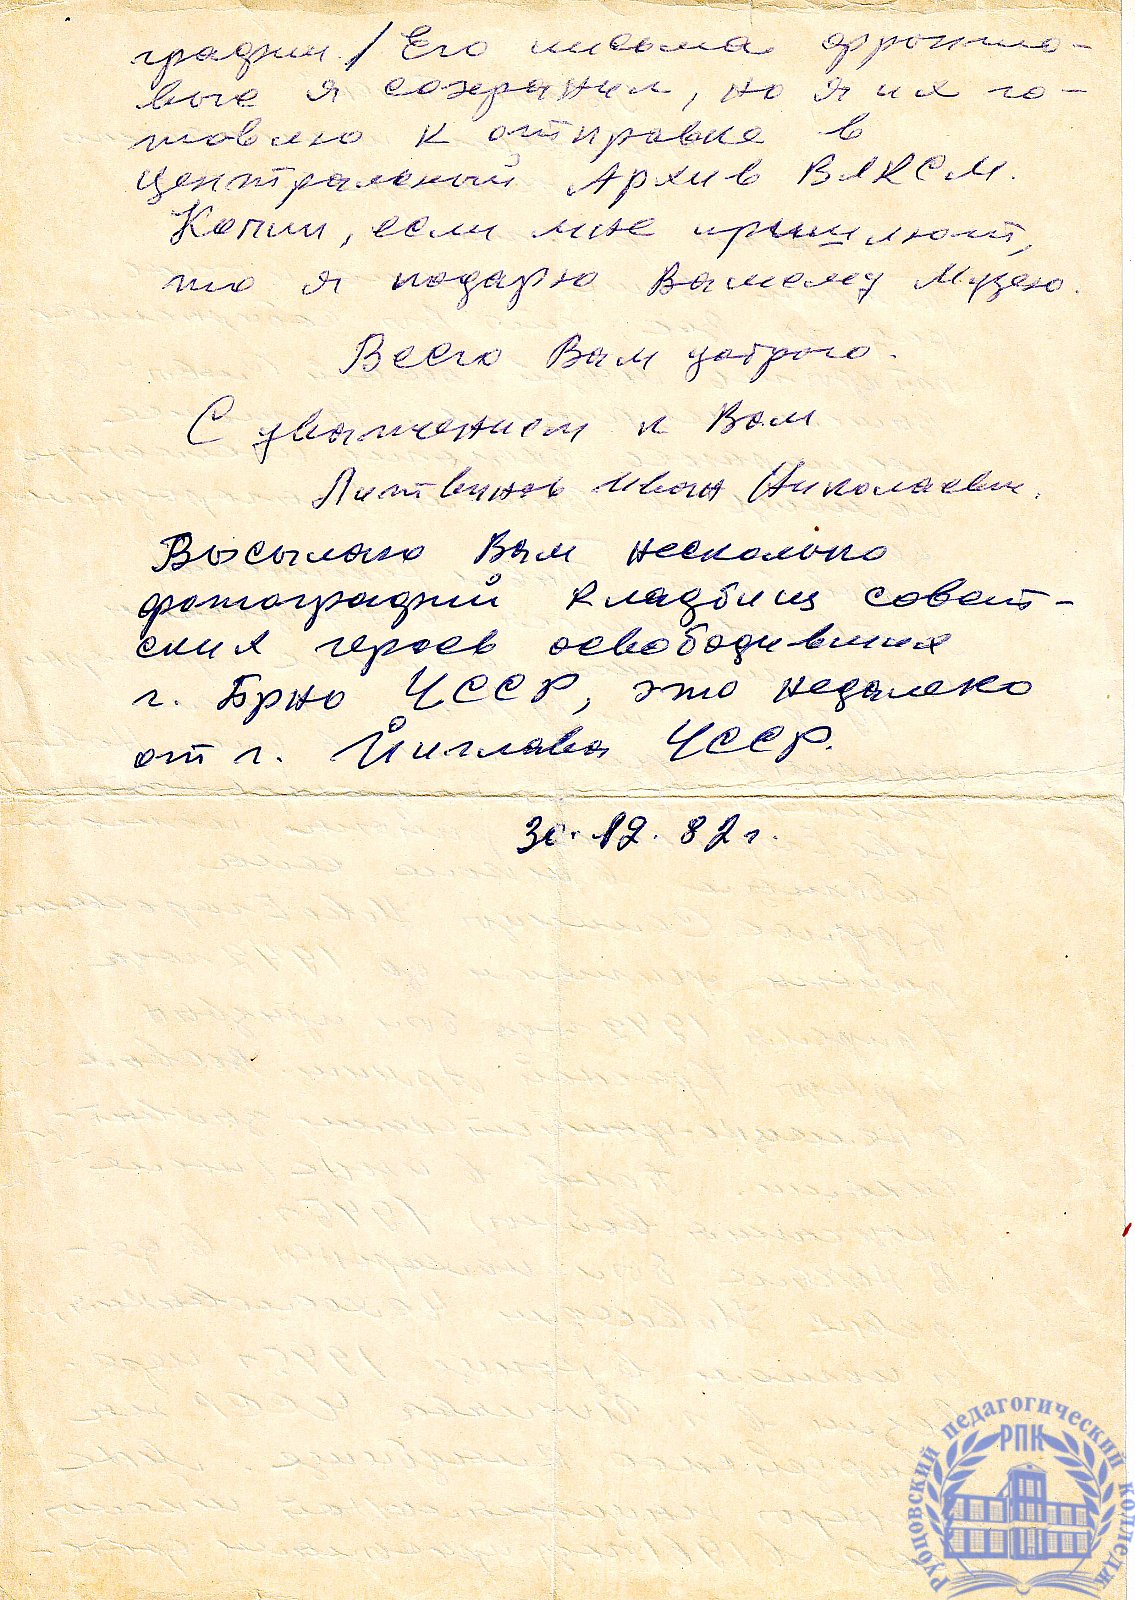 графии./ Его письма фронто-
вые я сохранил, но я их го-
товлю к отправке в
Центральный Архив ВЛКСМ.
Копии, если мне пришлют,
то я подарю Вашему Музею.
Всего Вам доброго.
С уважением к Вам
Литвинов Иван Николаевич.
Высылаю Вам несколько
фотографий кладбищ совет-
ских героев освободивших
г. Брно ЧССР, это недалеко
от г. Йиглава ЧССР.
30.12.82 г.
Рубцовский педагогический колледж
РПК